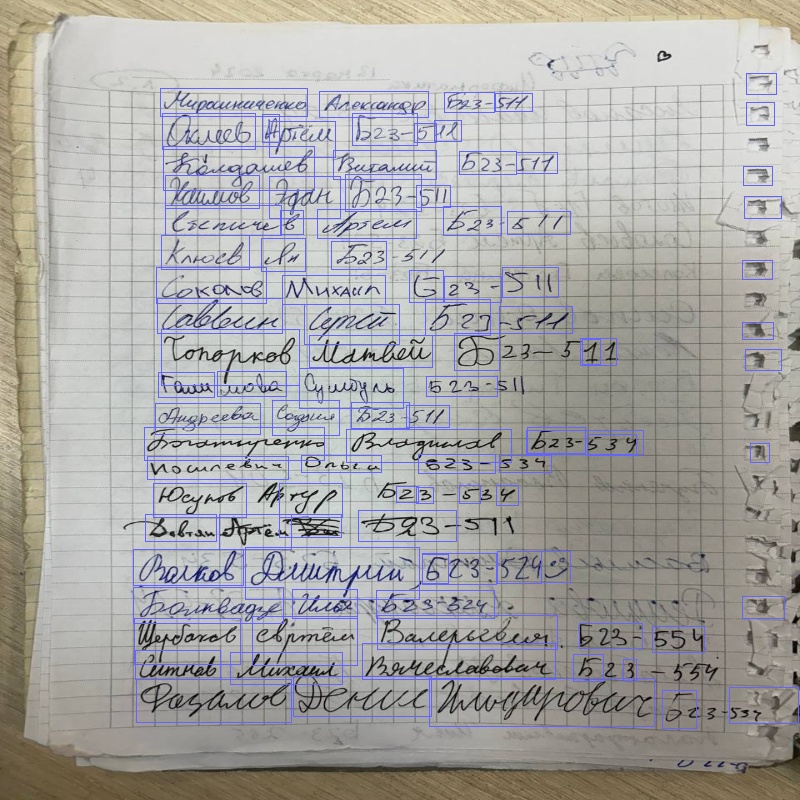 Мирошниченко Александр Б23-511
Артём Б23-511
Колдашев Виталий Б23-511
Наумов Эдан Б23-511
Артем Б23-511
Клюев Ян Б23-511
Соколов Михаил Б23-511
Саввин Сергей Б23-511
Топорков Матвей Б23-511
Галимова Сумбуль Б23-511
Андреева София Б23-511
Богатыренко Владислав Б23-534
Ольга Б23-534
Юсупов Артур Б23-534
Артём Б23-511
Волков Дмитрий Б23-524
Болквадзе Илья Б23-524
Щербаков Валерьевич Б23-554
Ситнов Михаил Вячеславович Б23-554
Фазалов Денис Ильдарович Б23-534